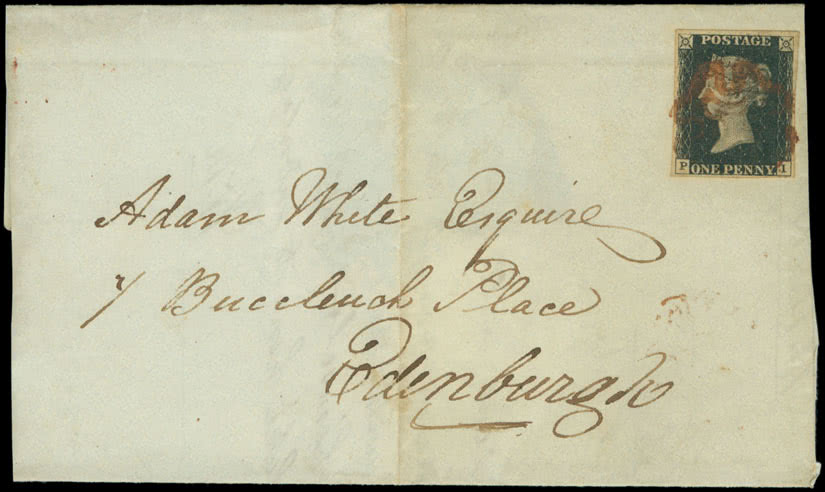 POSTAGE
P ONE PENNY. I
Adam White Esquire
7 Buccleuch Place
Edenburgh